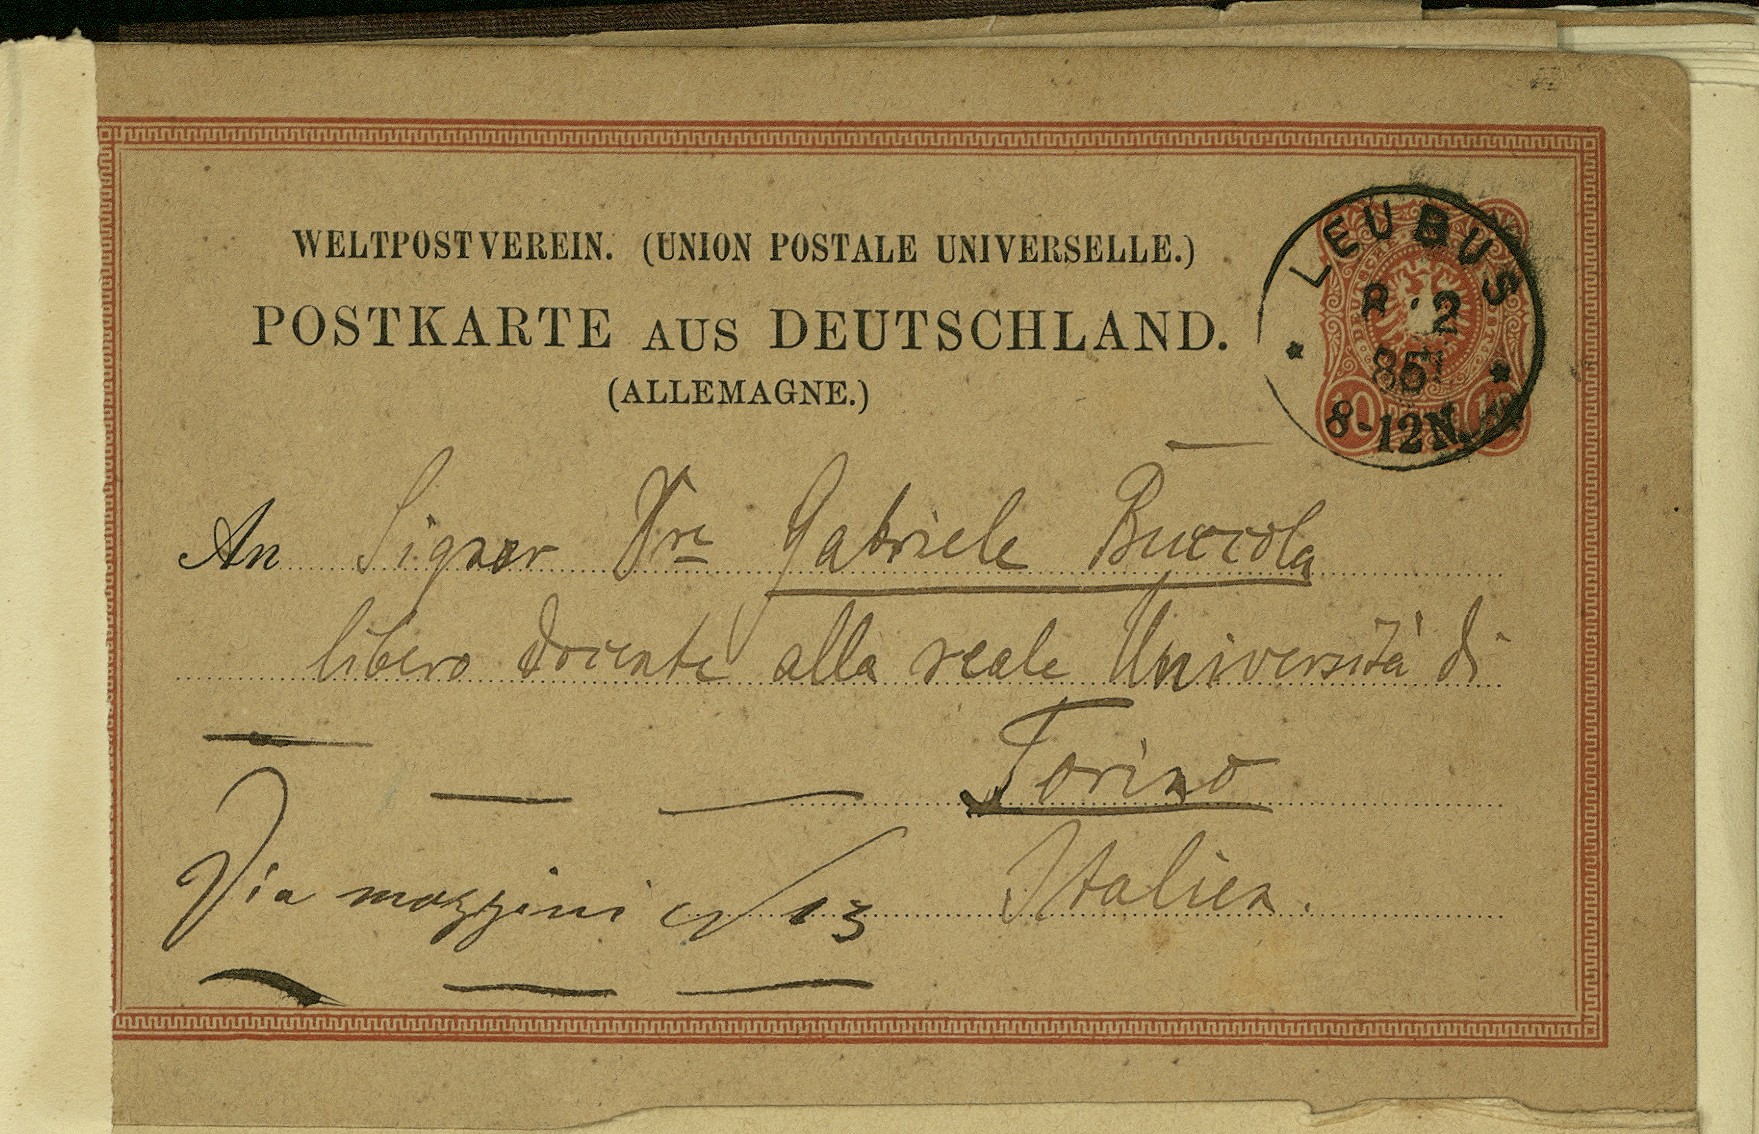 WELTPOSTVEREIN. (UNION POSTALE UNIVERSELLE.)
POSTKARTE AUS DEUTSCHLAND.
(ALLEMAGNE.)
LEUBUS
8 2
85
8-12N.
10 10
An Signor Dre Gabriele Buccola
libero docente alla reale Università di
Torino
Via mazzini N 13 Italien.